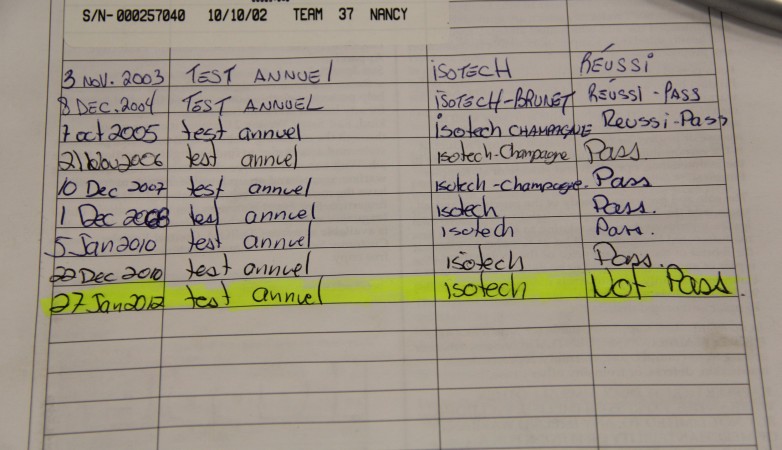 S/N-000257040 10/10/02 TEAM 37 NANCY
3 NOV. 2003 TEST ANNUEL ISOTECH RÉUSSI
8 DEC. 2004 TEST ANNUEL ISOTECH-BRUNET RÉUSSI-PASS
7 oct 2005 test annuel isotech CHAMPAGNE Reussi-Pass
21 Nov 2006 test annuel isotech-Champagne Pass.
10 Dec 2007 test annuel isotech-champagne. Pass
1 Dec 2008 test annuel isotech Pass.
5 Jan 2010 test annuel isotech Pass.
22 Dec 2010 test annuel isotech Pass.
27 Jan 2012 test annuel isotech Not Pass.